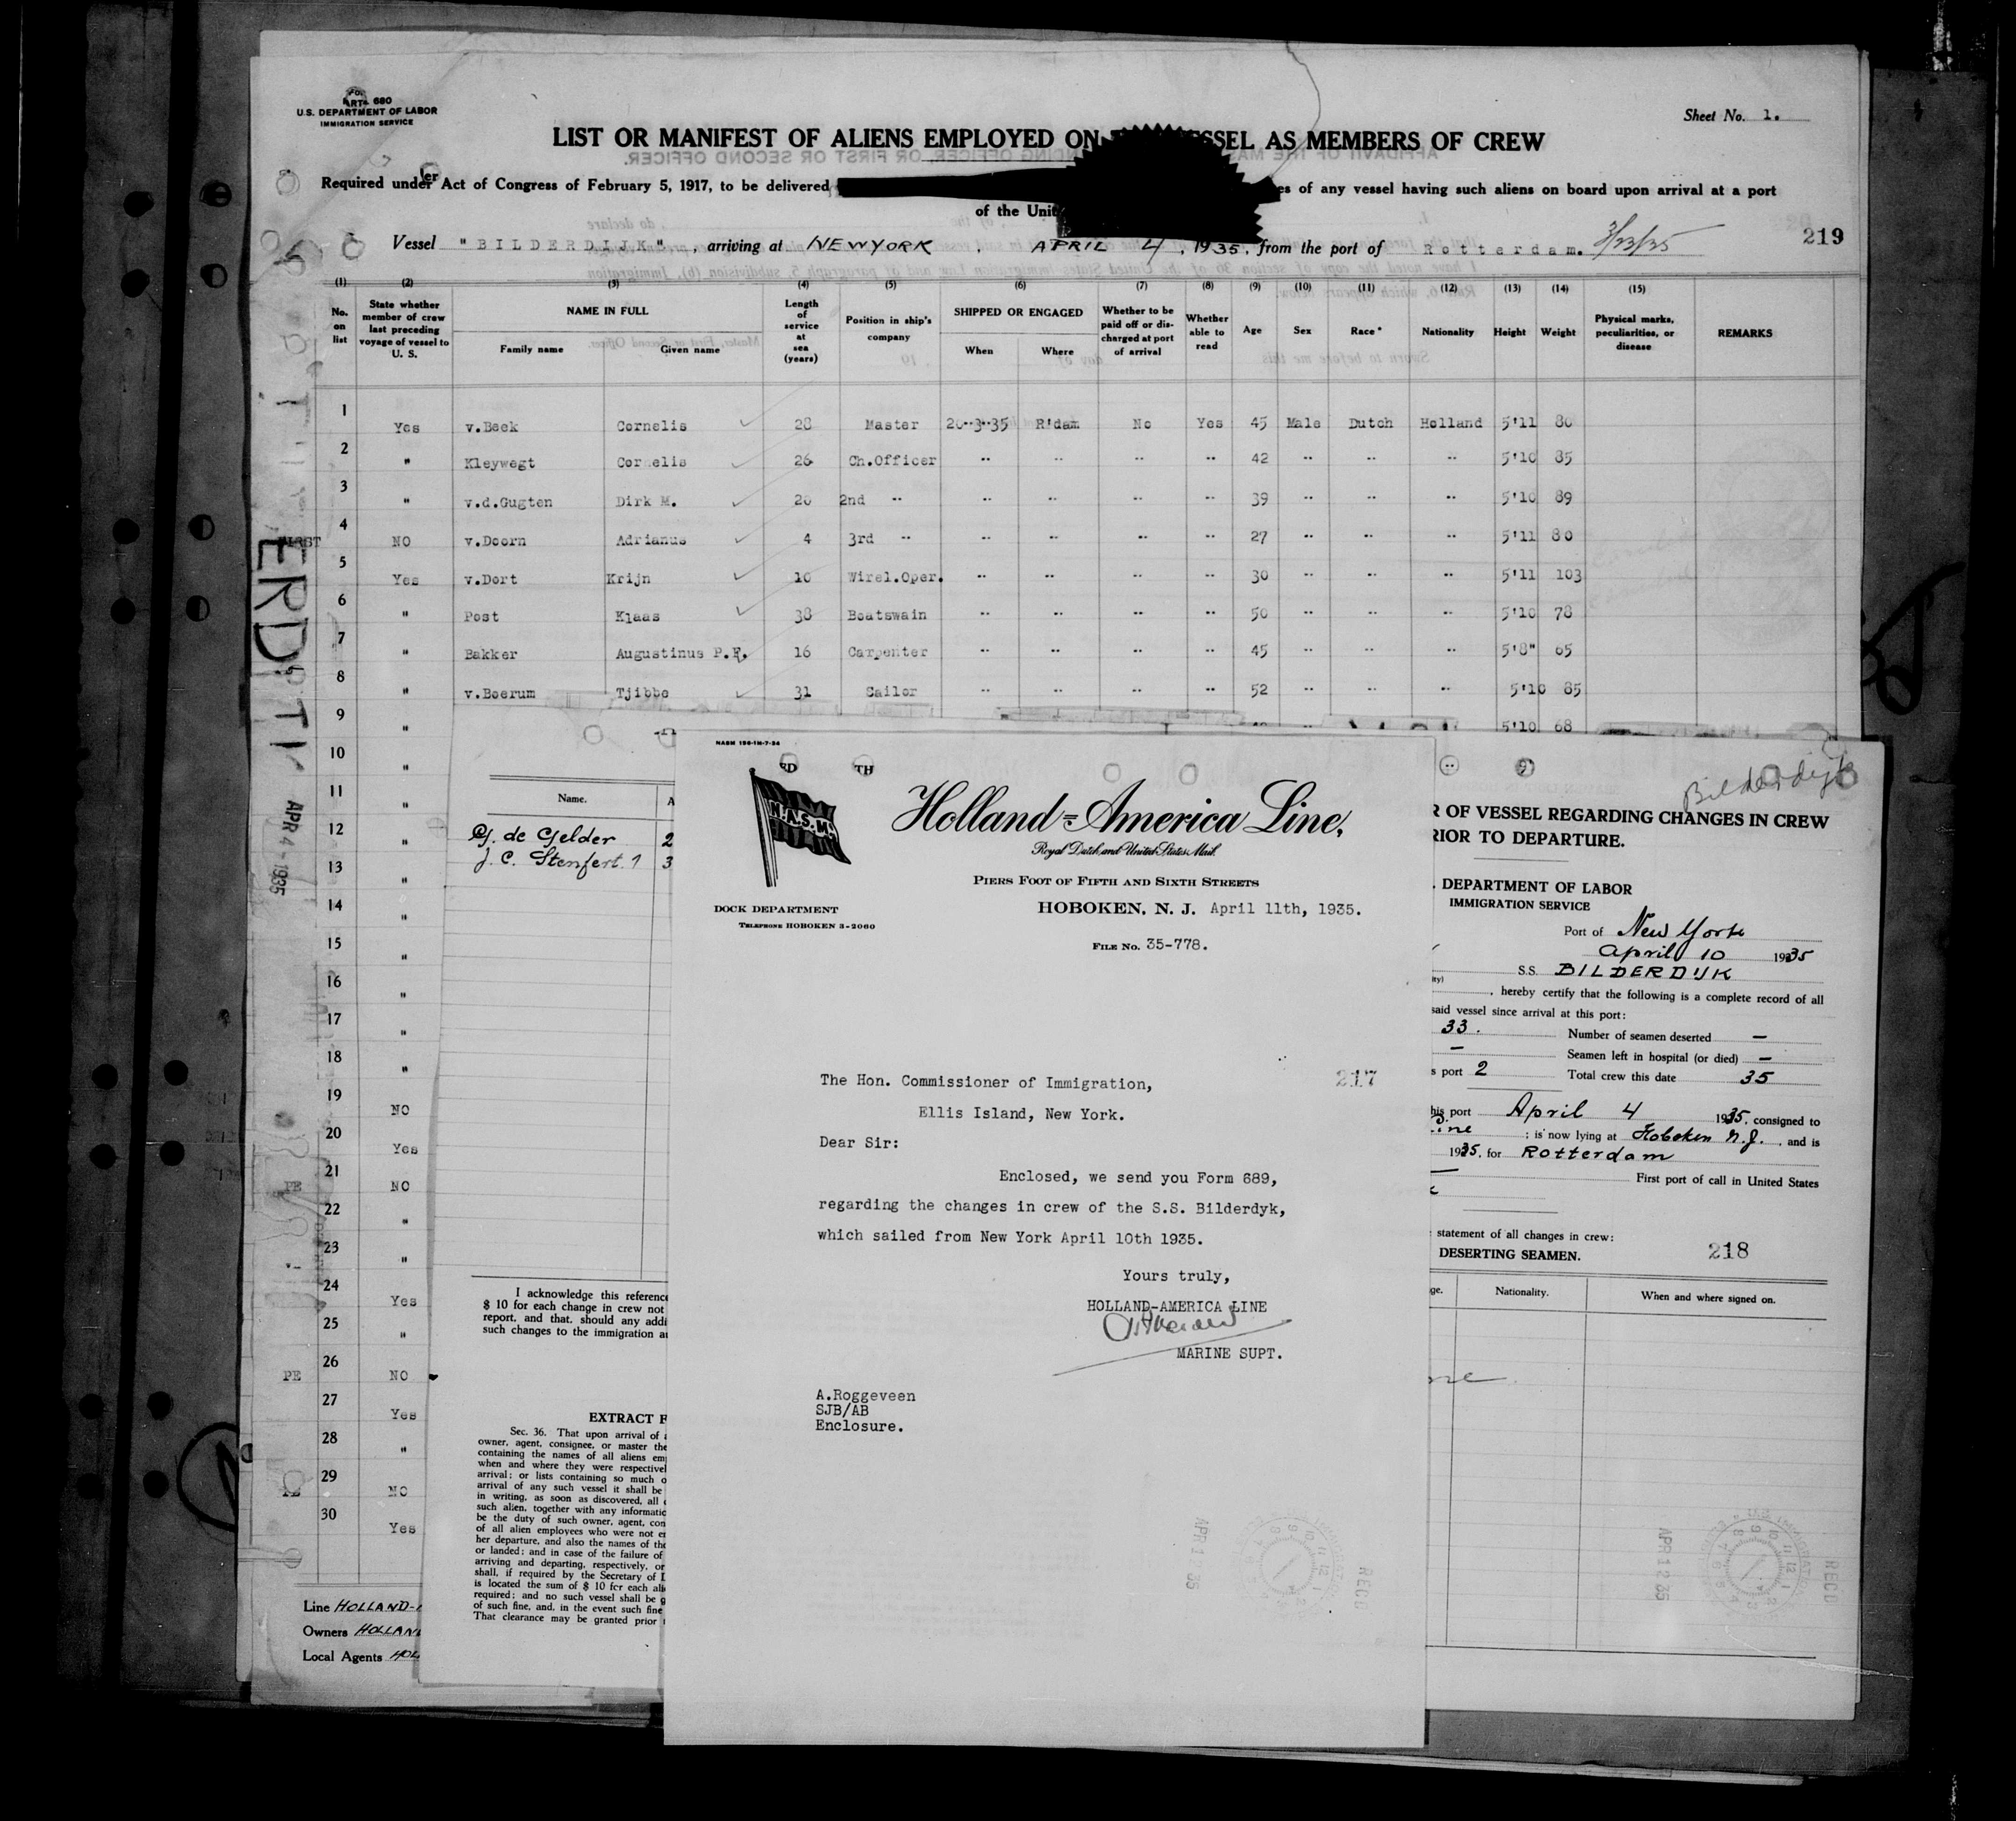 680
U.S. DEPARTMENT OF LABOR
IMMIGRATION SERVICE
Sheet No. 1.
LIST OR MANIFEST OF ALIENS EMPLOYED ON SSEL AS MEMBERS OF CREW
Required under Act of Congress of February 5, 1917, to be delivered es of any vessel having such aliens on board upon arrival at a port
of the Unit
Vessel "BILDERDIJK", arriving at NEWYORK, APRIL 4, 1935, from the port of Rotterdam. 3/23/35 219
(1) (2) (3) (4) (5) (6) (7) (8) (9) (10) (11) (12) (13) (14) (15)
No. on list State whether member of crew last preceding voyage of vessel to U. S. NAME IN FULL Family name Given name Length of service at sea (years) Position in ship's company SHIPPED OR ENGAGED When Where Whether to be paid off or discharged at port of arrival Whether able to read Age Sex Race* Nationality Height Weight Physical marks, peculiarities, or disease REMARKS
1 Yes v.Beek Cornelis 28 Master 20-3-35 R'dam No Yes 45 Male Dutch Holland 5'11 80
2 " Kleywegt Cornelis 26 Ch.Officer " " " " 42 " " " 5'10 85
3 " v.d.Gugten Dirk M. 20 2nd " " " " " 39 " " " 5'10 89
4 NO v.Doorn Adrianus 4 3rd " " " " " 27 " " " 5'11 80
5 Yes v.Dort Krijn 10 Wirel.Oper. " " " " 30 " " " 5'11 103
6 " Post Klaas 38 Boatswain " " " " 50 " " " 5'10 78
7 " Bakker Augustinus P.F. 16 Carpenter " " " " 45 " " " 5'8" 65
8 " v.Boerum Tjibbe 31 Sailor " " " " 52 " " " 5'10 85
9 " 5'10 68
10 "
11 "
12 "
13 "
14 "
15 "
16 "
17 "
18 "
19 NO
20 Yes
21 PE NO
22 "
23 "
24 Yes
25 "
26 PE NO
27 Yes
28 "
29 NO
30 Yes
APR 4 - 1935
Line HOLLAND-
Owners HOLLAN
Local Agents HOL
Name.
G. de Gelder 2
J. C. Stenfert 3
I acknowledge this reference
$ 10 for each change in crew not
report, and that, should any addi
such changes to the immigration a
EXTRACT F
Sec. 36. That upon arrival of
owner, agent, consignee, or master the
containing the names of all aliens em
when and where they were respectivel
arrival; or lists containing so much o
arrival of any such vessel it shall be
in writing, as soon as discovered, all
such alien, together with any informatic
be the duty of such owner, agent, con
of all alien employees who were not e
her departure, and also the names of the
or landed; and in case of the failure of
arriving and departing, respectively, or
shall, if required by the Secretary of
is located the sum of $ 10 for each ali
required; and no such vessel shall be g
of such fine, and, in the event such fine
That clearance may be granted prior
NASM 196-1M-7-34
N.A.S.M.
Holland=America Line,
Royal Dutch and United States Mail.
PIERS FOOT OF FIFTH AND SIXTH STREETS
DOCK DEPARTMENT
TELEPHONE HOBOKEN 3-2060
HOBOKEN, N. J. April 11th, 1935.
FILE No. 35-778.
The Hon. Commissioner of Immigration,
217
Ellis Island, New York.
Dear Sir:
Enclosed, we send you Form 689,
regarding the changes in crew of the S.S. Bilderdyk,
which sailed from New York April 10th 1935.
Yours truly,
HOLLAND-AMERICA LINE
MARINE SUPT.
A.Roggeveen
SJB/AB
Enclosure.
APR 12 35
RECD
Bilderdijk
R OF VESSEL REGARDING CHANGES IN CREW
RIOR TO DEPARTURE.
. DEPARTMENT OF LABOR
IMMIGRATION SERVICE
Port of New York
April 10 1935
S.S. BILDERDIJK
, hereby certify that the following is a complete record of all
said vessel since arrival at this port:
33. Number of seamen deserted —
— Seamen left in hospital (or died) —
s port 2 Total crew this date 35
his port April 4 1935, consigned to
ine ; is now lying at Hoboken N.J., and is
1935, for Rotterdam
First port of call in United States
statement of all changes in crew:
DESERTING SEAMEN. 218
ge. Nationality. When and where signed on.
APR 12 35
RECD